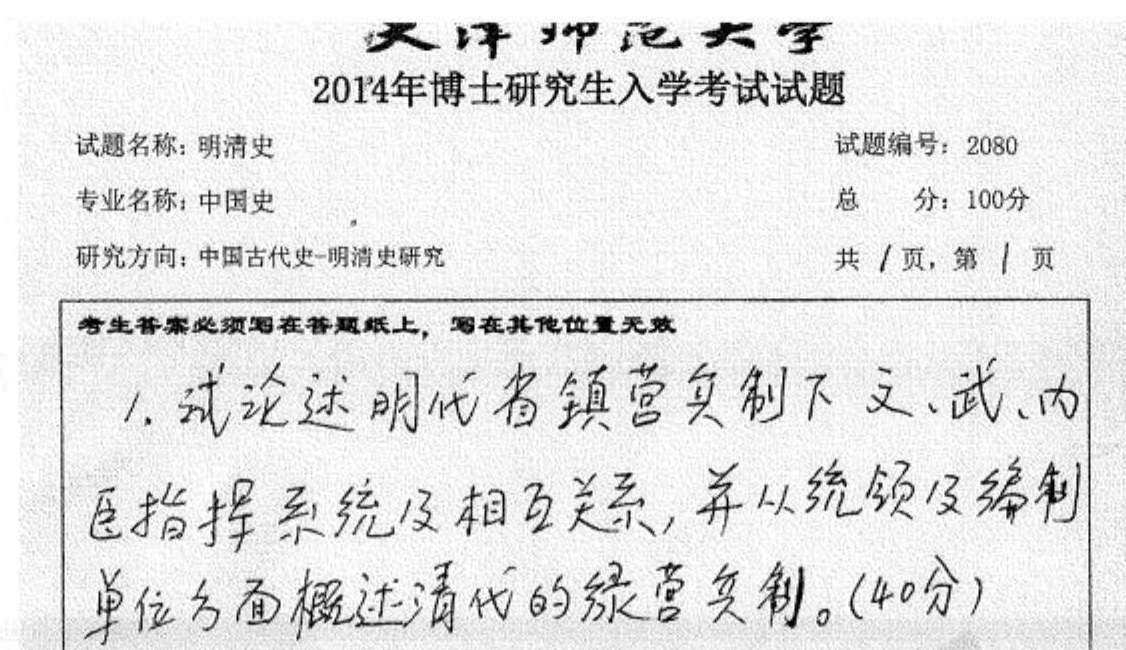 天津师范大学
2014年博士研究生入学考试试题
试题名称：明清史
试题编号：2080
专业名称：中国史
总 分：100分
研究方向：中国古代史-明清史研究
共 1 页，第 1 页
考生答案必须写在答题纸上，写在其他位置无效
1. 试论述明代省镇营兵制下文、武、内
臣指挥系统及相互关系，并从统领及编制
单位方面概述清代的绿营兵制。(40分)